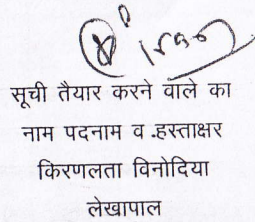 सूची तैयार करने वाले का
नाम पदनाम व .हस्ताक्षर
किरणलता विनोदिया
लेखापाल